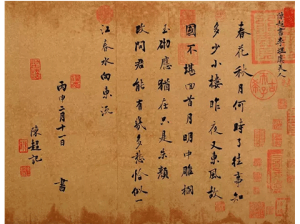 春花秋月何時了往事知
多少小樓昨夜又東風故
國不堪回首月明中雕欄
玉砌應猶在只是朱顏
改問君能有幾多愁恰似一
江春水向東流
丙申二月十一日 書